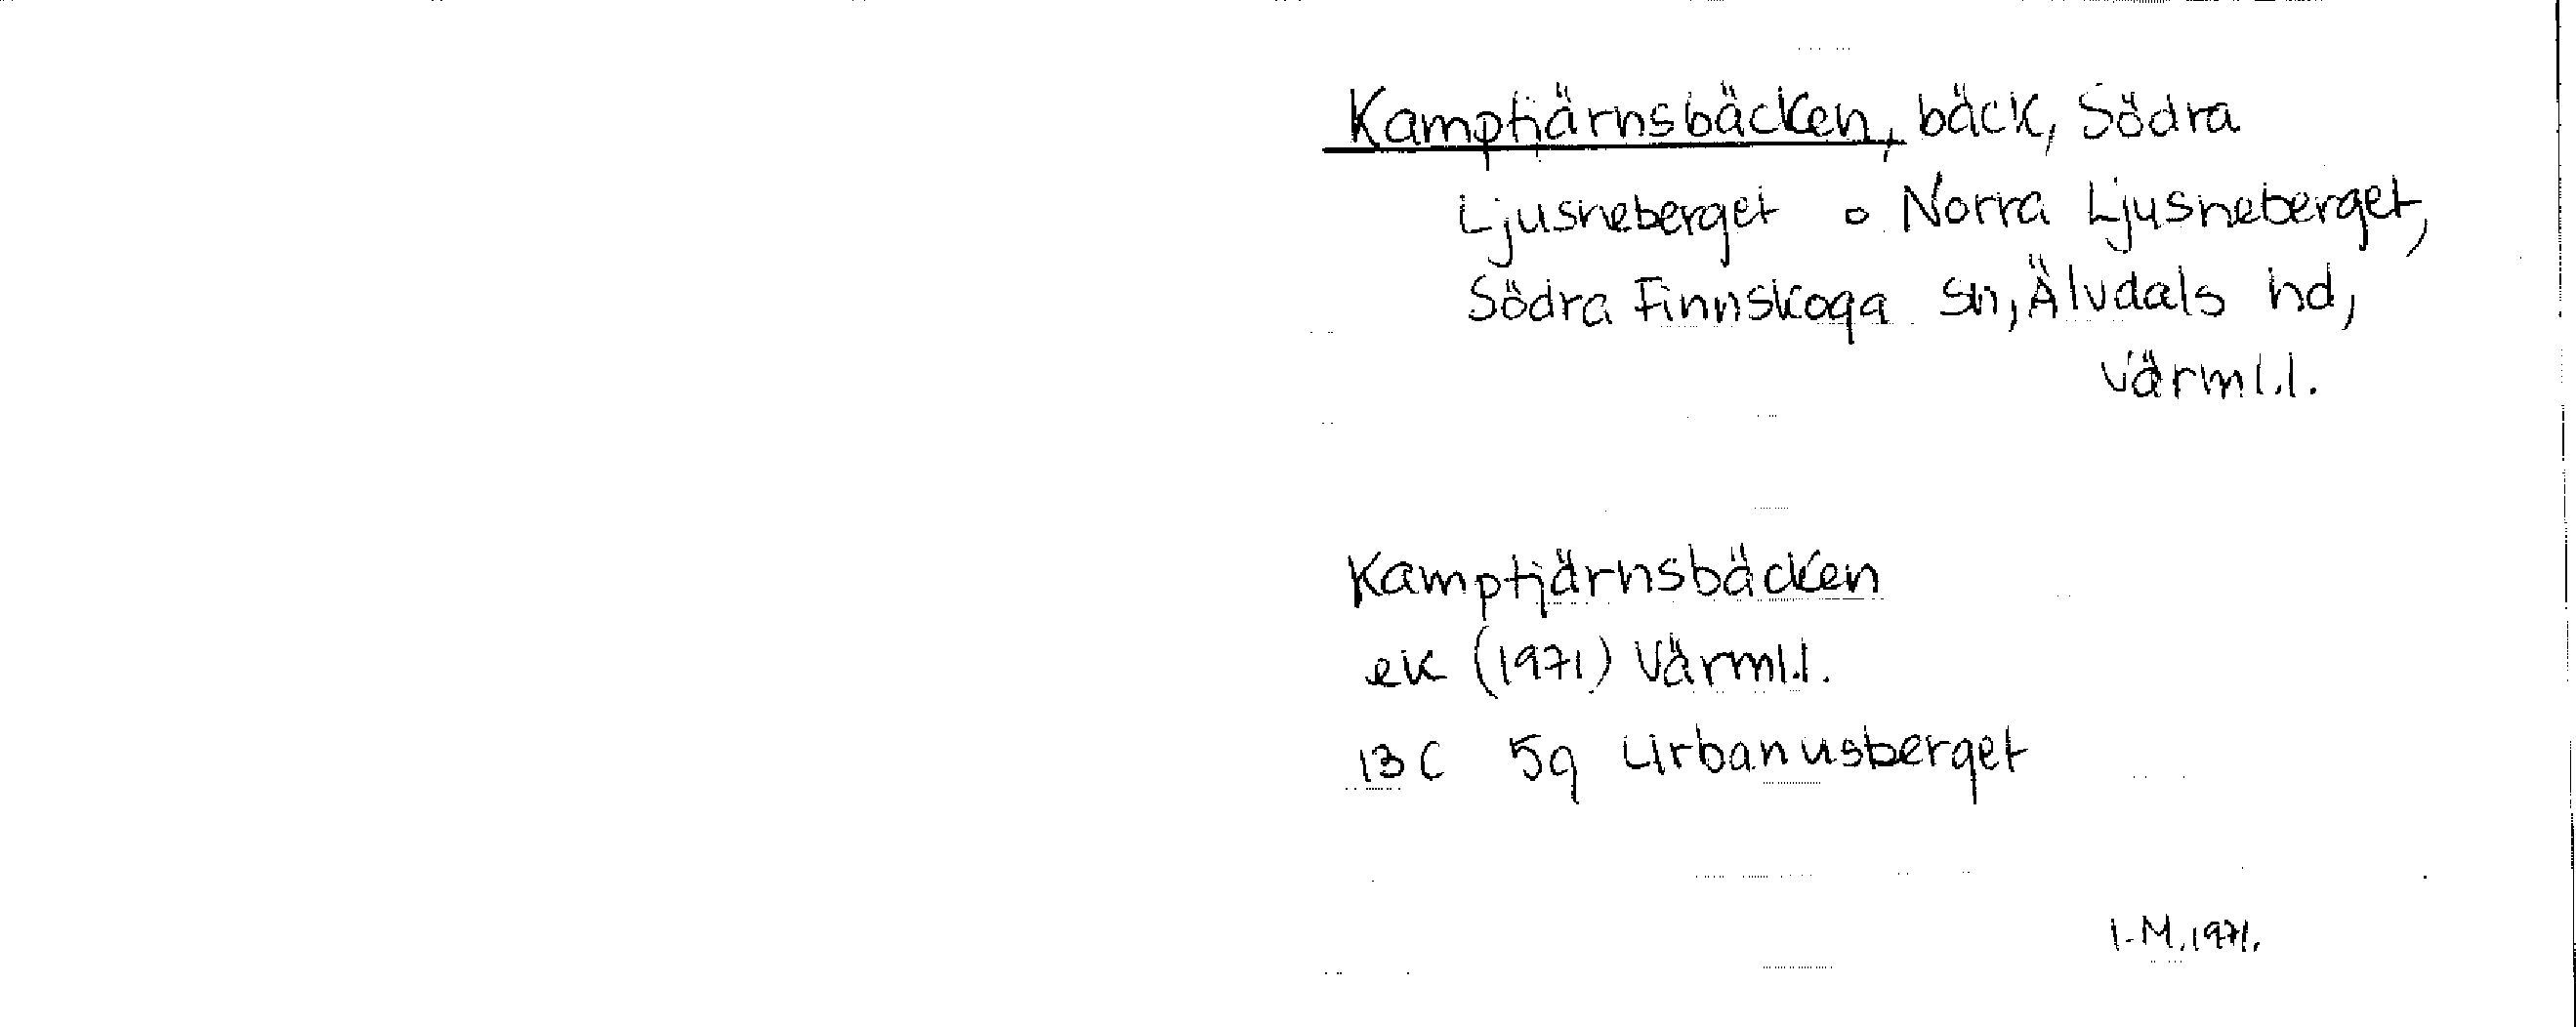 Kamptjärnsbäcken, bäck, Södra
Ljusneberget o Norra Ljusneberget,
Södra Finnskoga sn, Älvdals hd,
Värml.l.
Kamptjärnsbäcken
ek (1971) Värml.l.
13 C 5g Urbanusberget
I-M. 1971.